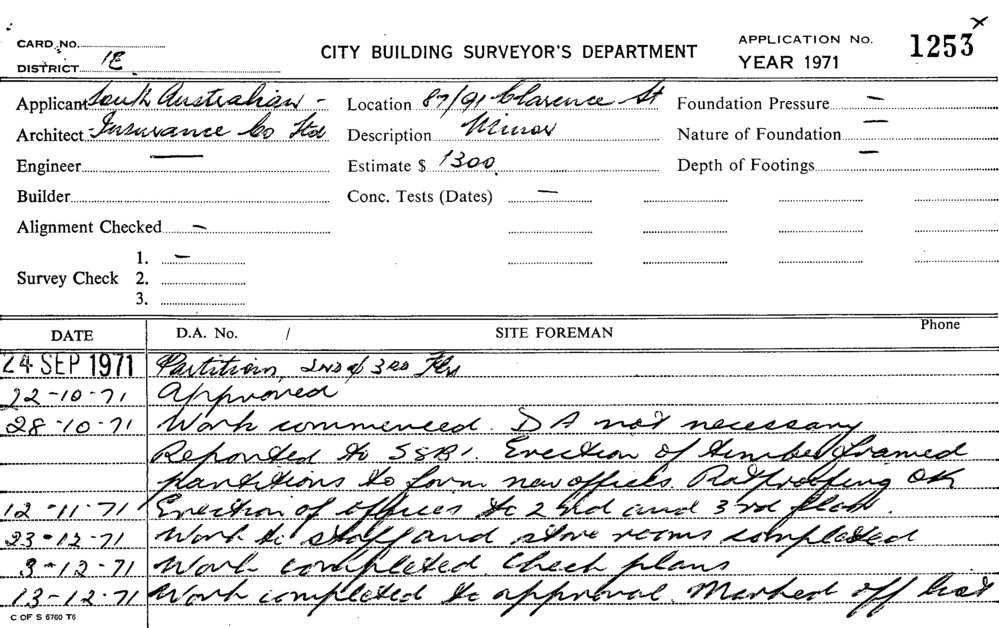 CARD No.
DISTRICT 1E
CITY BUILDING SURVEYOR'S DEPARTMENT
APPLICATION No. 1253
YEAR 1971
x
Applicant South Australian -
Architect Insurance Co Ltd
Engineer —
Builder
Alignment Checked –
Survey Check 1. –
2.
3.
Location 87/91 Clarence St
Description Minor
Estimate $ 1300
Conc. Tests (Dates) –
Foundation Pressure –
Nature of Foundation –
Depth of Footings –
DATE D.A. No. / SITE FOREMAN Phone
24 SEP 1971 Partition, 2ND & 3RD Flrs
22-10-71 Approved
28-10-71 Work commenced. DA not necessary
Reported to SSB1. Erection of timber framed
partitions to form new offices. Ratproofing OK
12-11-71 Erection of offices to 2nd and 3rd floor.
23-12-71 Work to staff and store rooms completed
3-12-71 Work completed. Check plans
13-12-71 Work completed to approval. Marked off list
C OF S 6760 T6